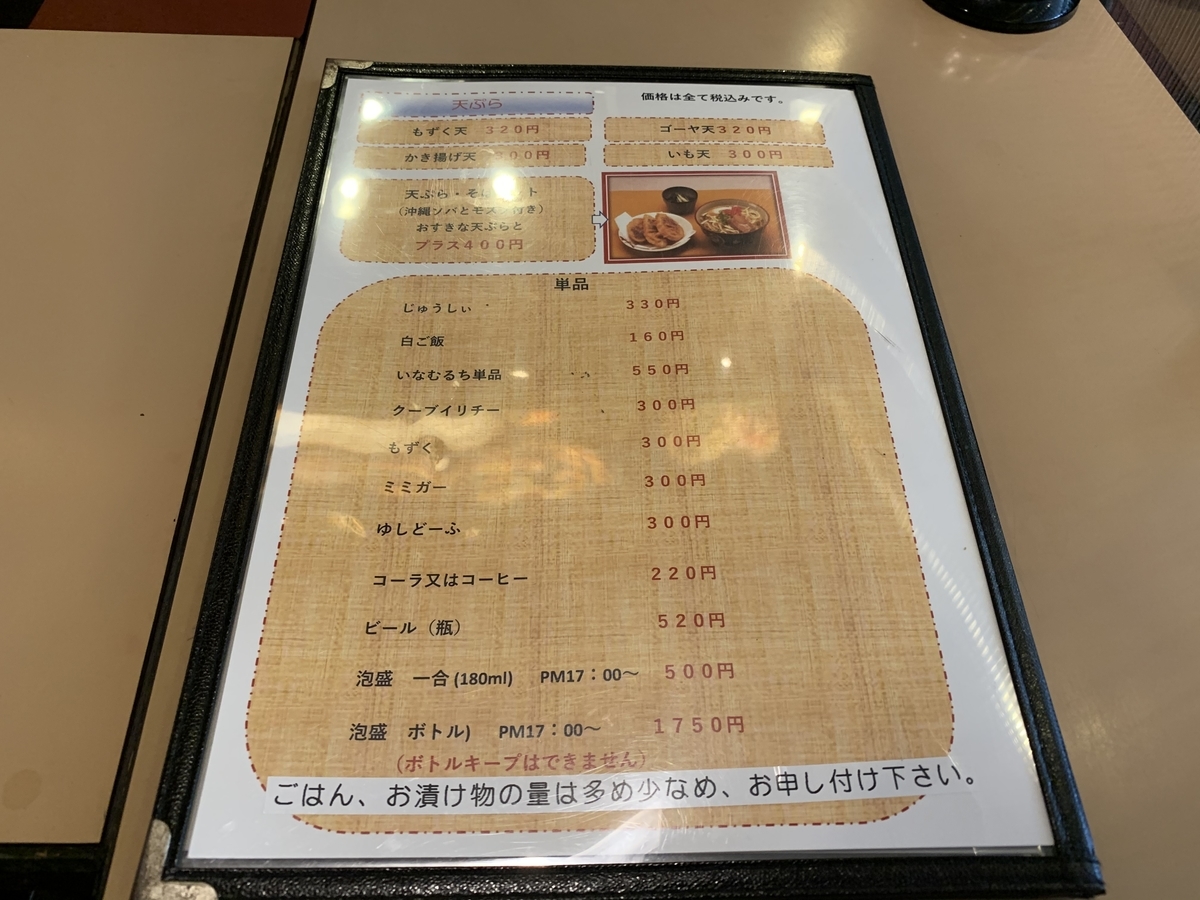 天ぷら
価格は全て税込みです。
もずく天 ３２０円
ゴーヤ天３２０円
かき揚げ天 ００円
いも天 ３００円
天ぷら・そ ト
（沖縄ソバとモズク付き）
おすきな天ぷらと
プラス４００円
単品
じゅうしぃ ３３０円
白ご飯 １６０円
いなむるち単品 ５５０円
クーブイリチー ３００円
もずく ３００円
ミミガー ３００円
ゆしどーふ ３００円
コーラ又はコーヒー ２２０円
ビール（瓶） ５２０円
泡盛 一合 (180ml) PM17：00～ ５００円
泡盛 ボトル) PM17：00～ １７５０円
（ボトルキープはできません）
ごはん、お漬け物の量は多め少なめ、お申し付け下さい。